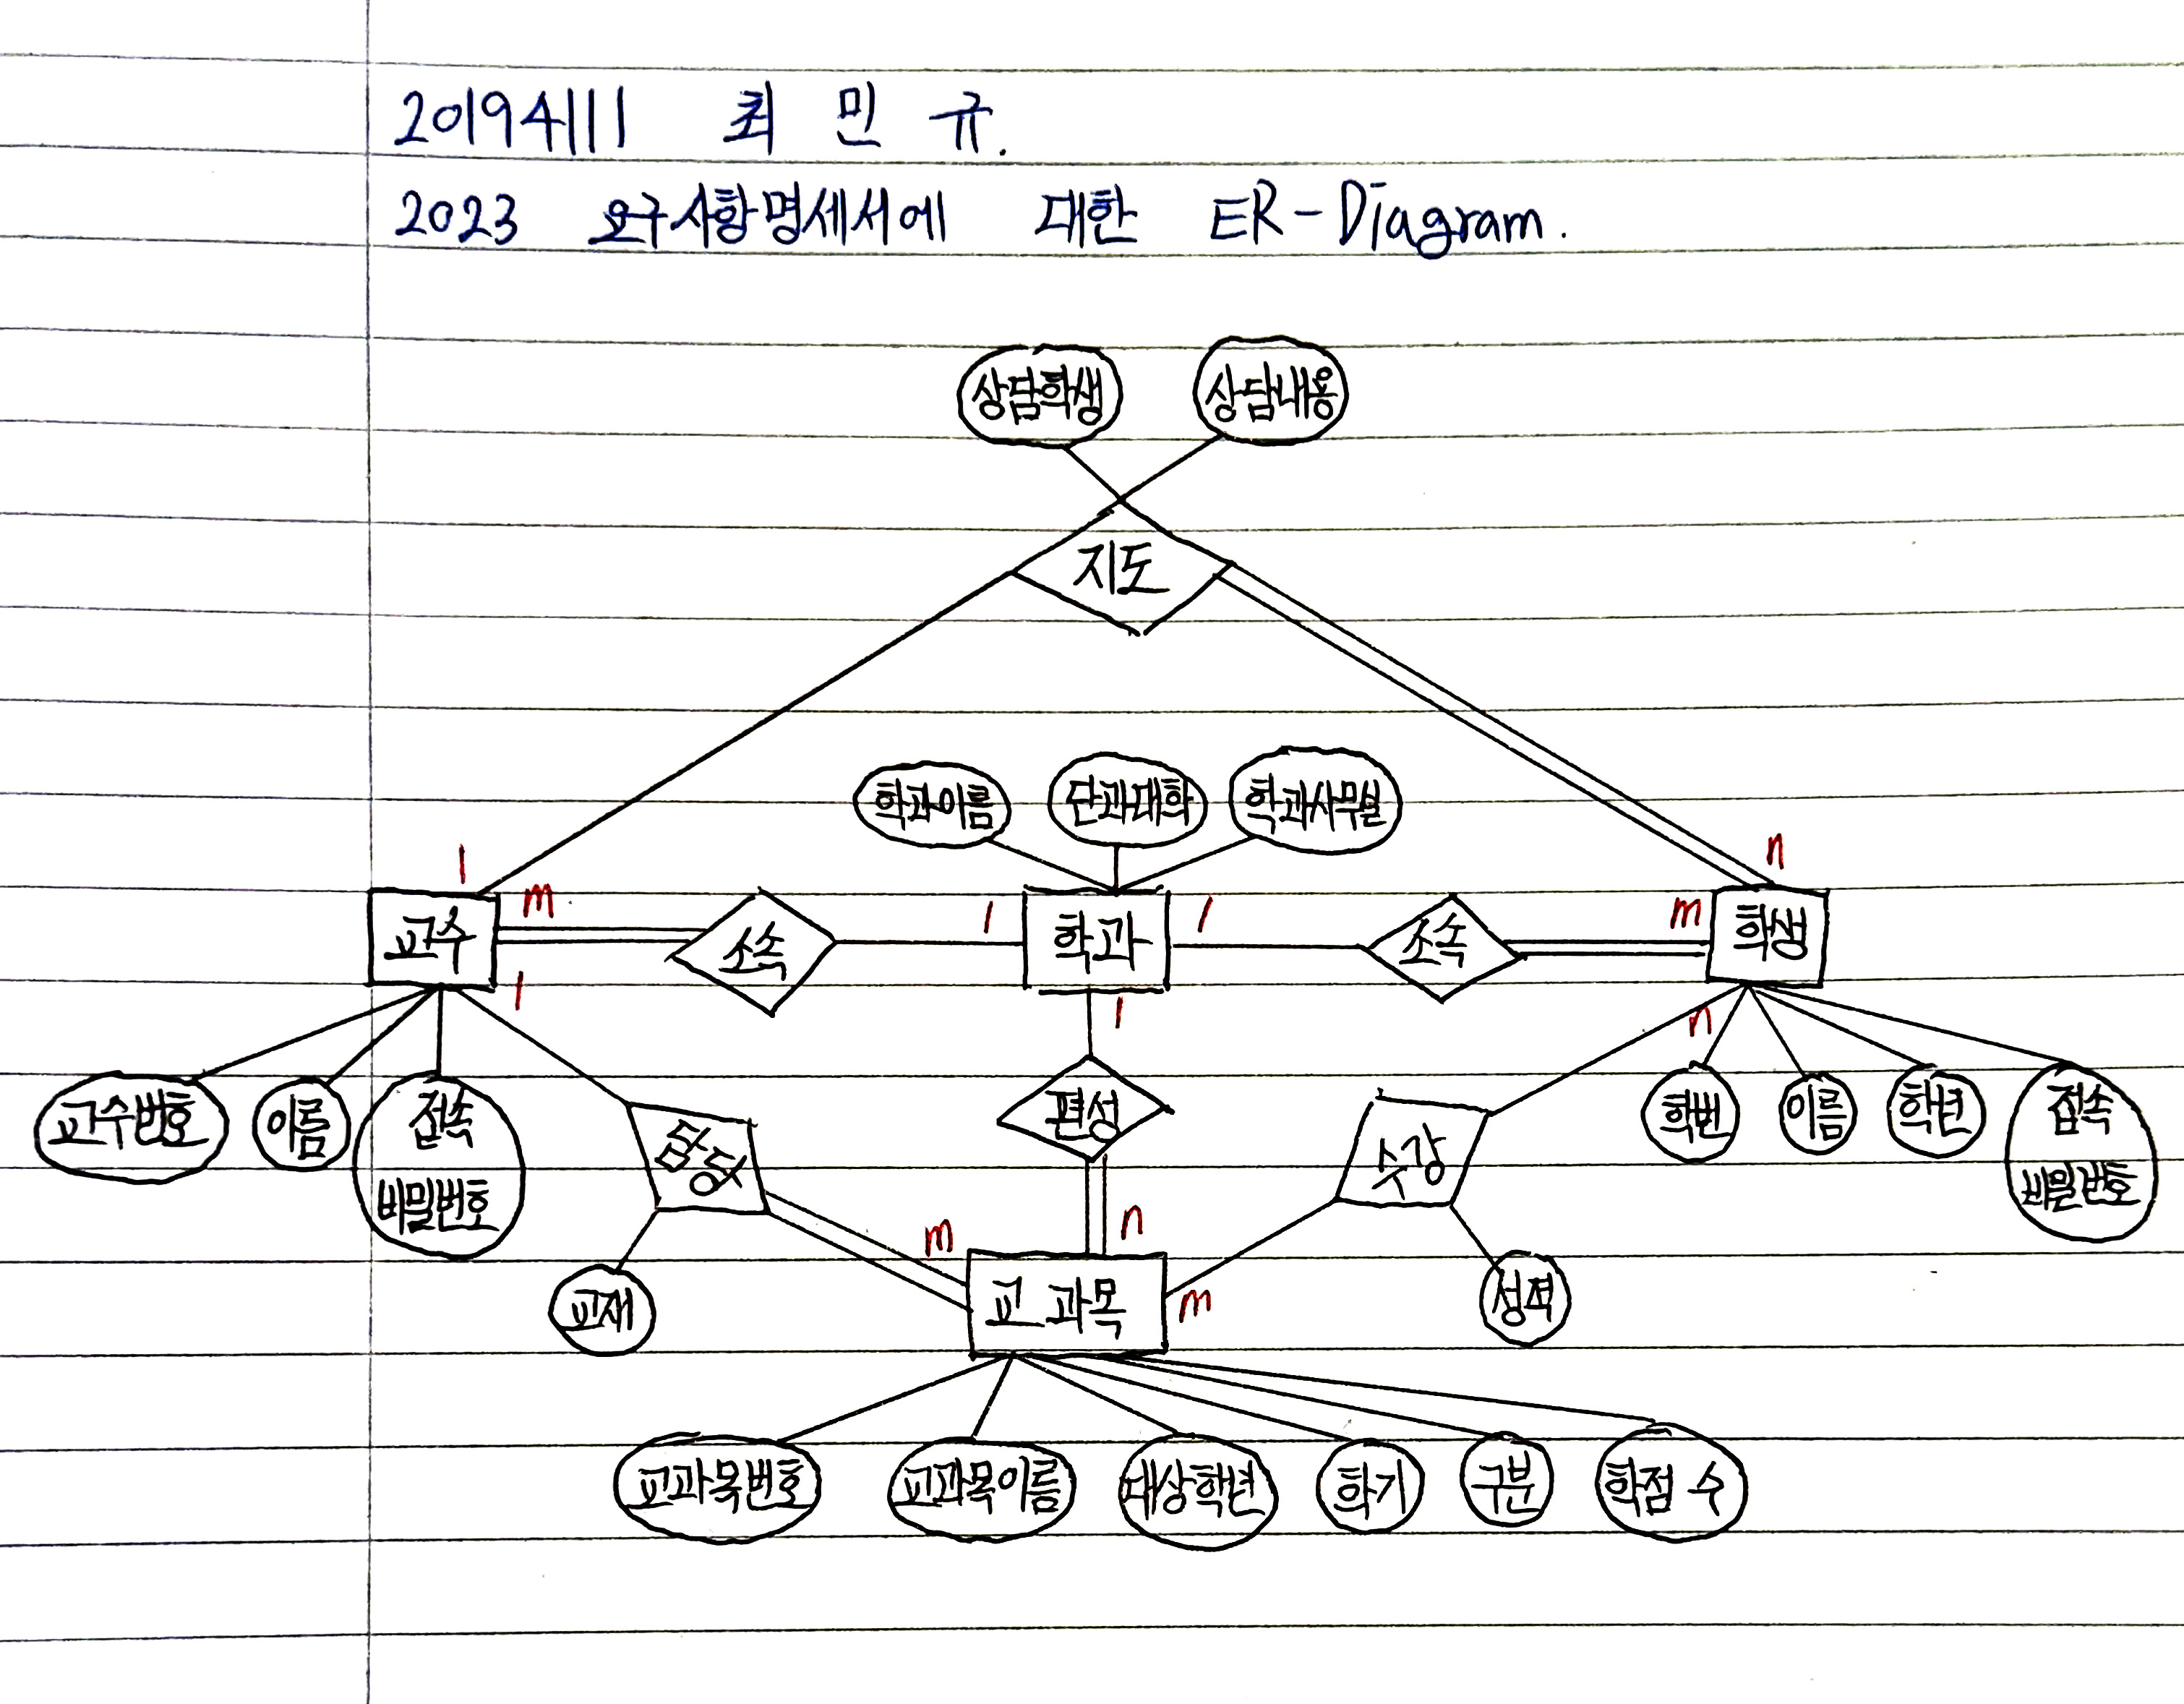 20194111 최민규.
2023 요구사항명세서에 대한 ER-Diagram.
상담학생 상담내용
지도
학과이름 단과대학 학과사무실
1 n
m 1 1 m
교수 소속 학과 소속 학생
1 1 n
교수번호 이름 접속
비밀번호
담당 편성 수강
학번 이름 학년 접속
비밀번호
m n
교재 교과목 m 성적
교과목번호 교과목이름 대상학년 학기 구분 학점 수